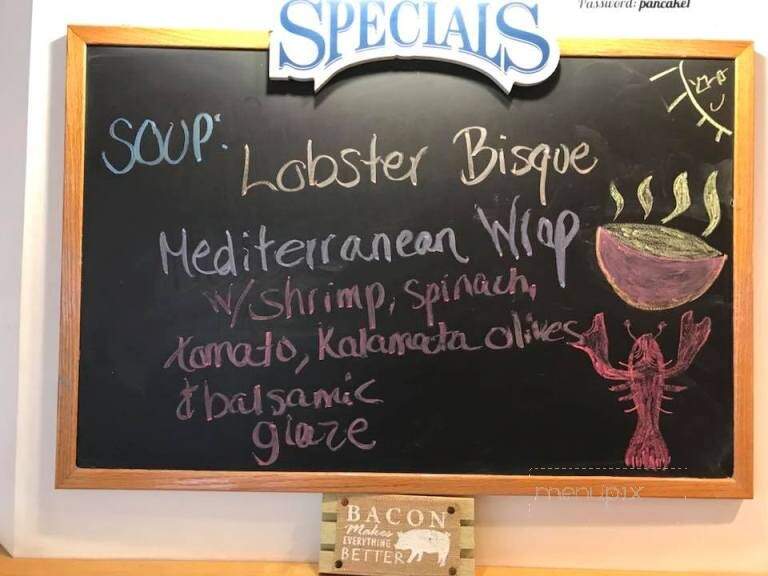 Password: pancake1
SPECIALS
SOUP: Lobster Bisque
Mediterranean Wrap
w/ shrimp, spinach,
tomato, Kalamata olives
& balsamic
glaze
menupix
BACON
Makes
EVERYTHING
BETTER